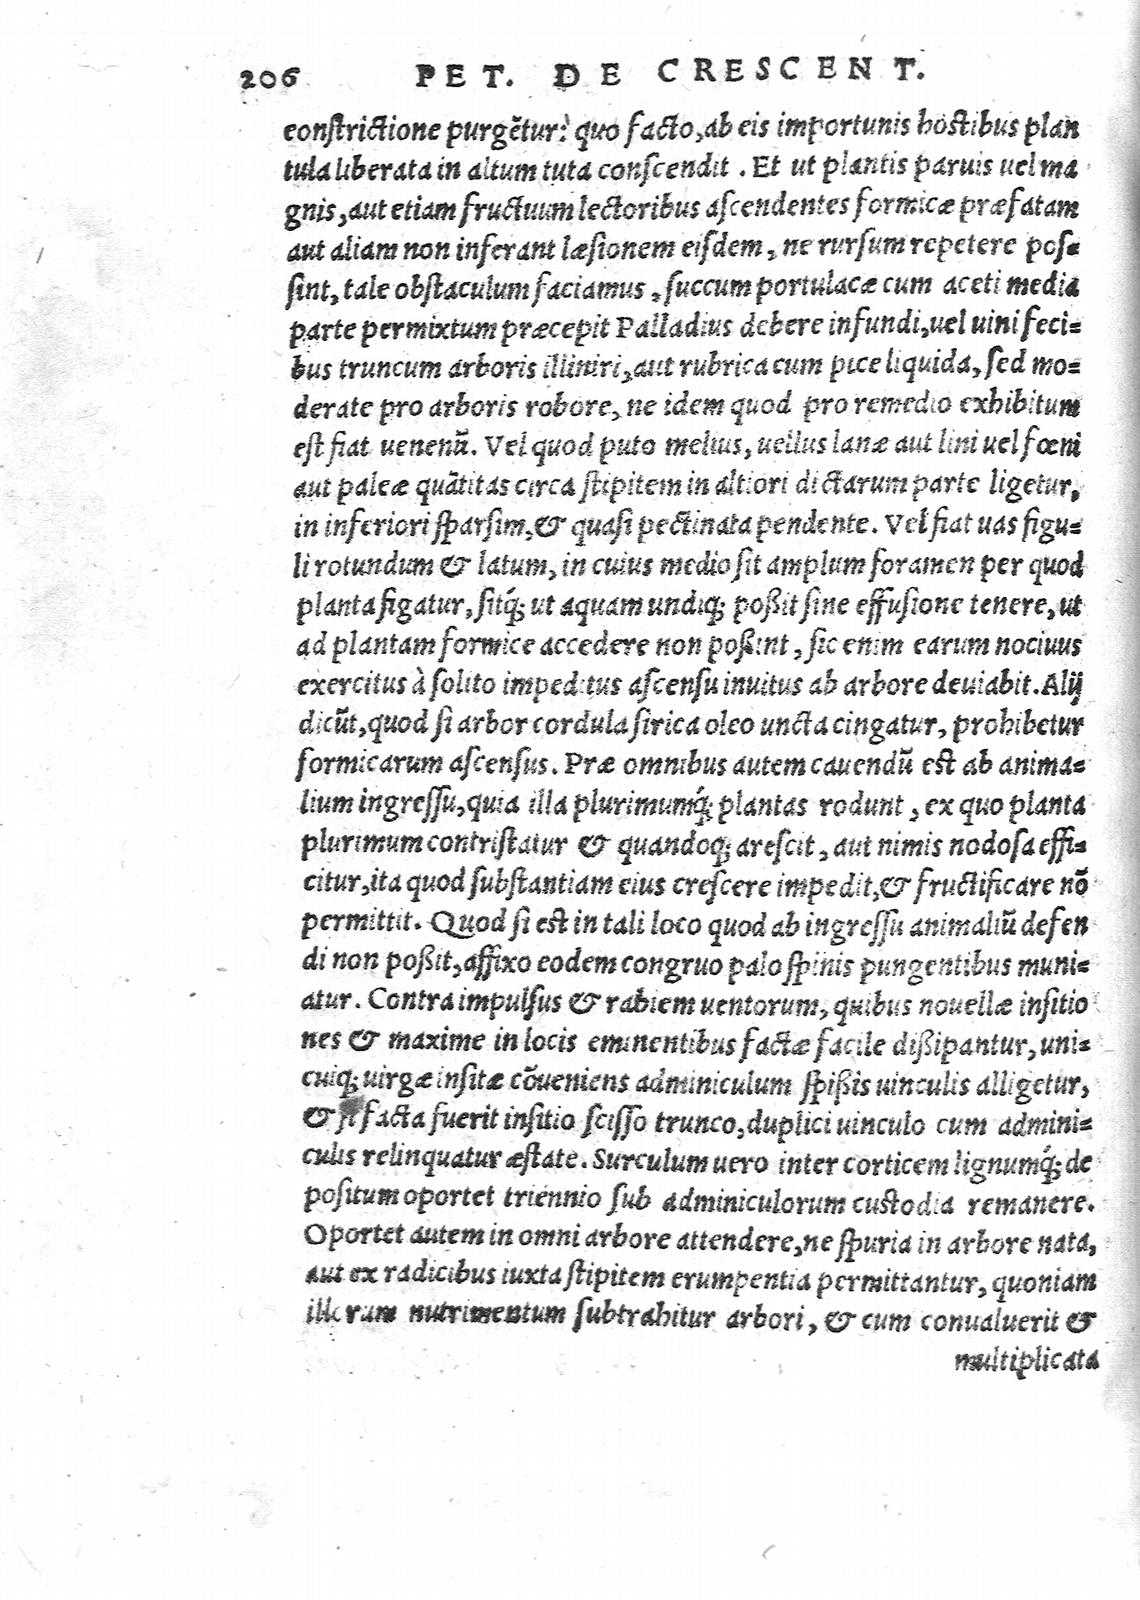 206 PET. DE CRESCENT.
constrictione purgẽtur: quo facto, ab eis importunis hostibus plan
tula liberata in altum tuta conscendit. Et ut plantis paruis uel ma
gnis, aut etiam fructuum lectoribus ascendentes formicæ præfatam
aut aliam non inferant læsionem eisdem, ne rursum repetere pos=
sint, tale obstaculum faciamus, succum portulacæ cum aceti media
parte permixtum præcepit Palladius debere infundi, uel uini feci=
bus truncum arboris illiniri, aut rubrica cum pice liquida, sed mo=
derate pro arboris robore, ne idem quod pro remedio exhibitum
est fiat uenenũ. Vel quod puto melius, uellus lanæ aut lini uel fœni
aut paleæ quãtitas circa stipitem in altiori dictarum parte ligetur,
in inferiori sparsim, & quasi pectinata pendente. Vel fiat uas figu=
li rotundum & latum, in cuius medio sit amplum foramen per quod
planta figatur, sitq́; ut aquam undiq; poßit sine effusione tenere, ut
ad plantam formice accedere non poßint, sic enim earum nociuus
exercitus à solito impeditus ascensu inuitus ab arbore deuiabit. Alij
dicũt, quod si arbor cordula sirica oleo uncta cingatur, prohibetur
formicarum ascensus. Præ omnibus autem cauendũ est ab anima=
lium ingressu, quia illa plurimumq́; plantas rodunt, ex quo planta
plurimum contristatur & quandoq; arescit, aut nimis nodosa effi=
citur, ita quod substantiam eius crescere impedit, & fructificare nõ
permittit. Quod si est in tali loco quod ab ingressu animaliũ defen
di non poßit, affixo eodem congruo palo spinis pungentibus muni=
atur. Contra impulsus & rabiem uentorum, quibus nouellæ insitio
nes & maxime in locis eminentibus factæ facile dißipantur, uni=
cuiq; uirgæ insitæ cõueniens adminiculum spißis uinculis alligetur,
& si facta fuerit insitio scisso trunco, duplici uinculo cum admini=
culis relinquatur æstate. Surculum uero inter corticem lignumq́; de
positum oportet triennio sub adminiculorum custodia remanere.
Oportet autem in omni arbore attendere, ne spuria in arbore nata,
aut ex radicibus iuxta stipitem erumpentia permittantur, quoniam
illorum nutrimentum subtrahitur arbori, & cum conualuerit &
multiplicata